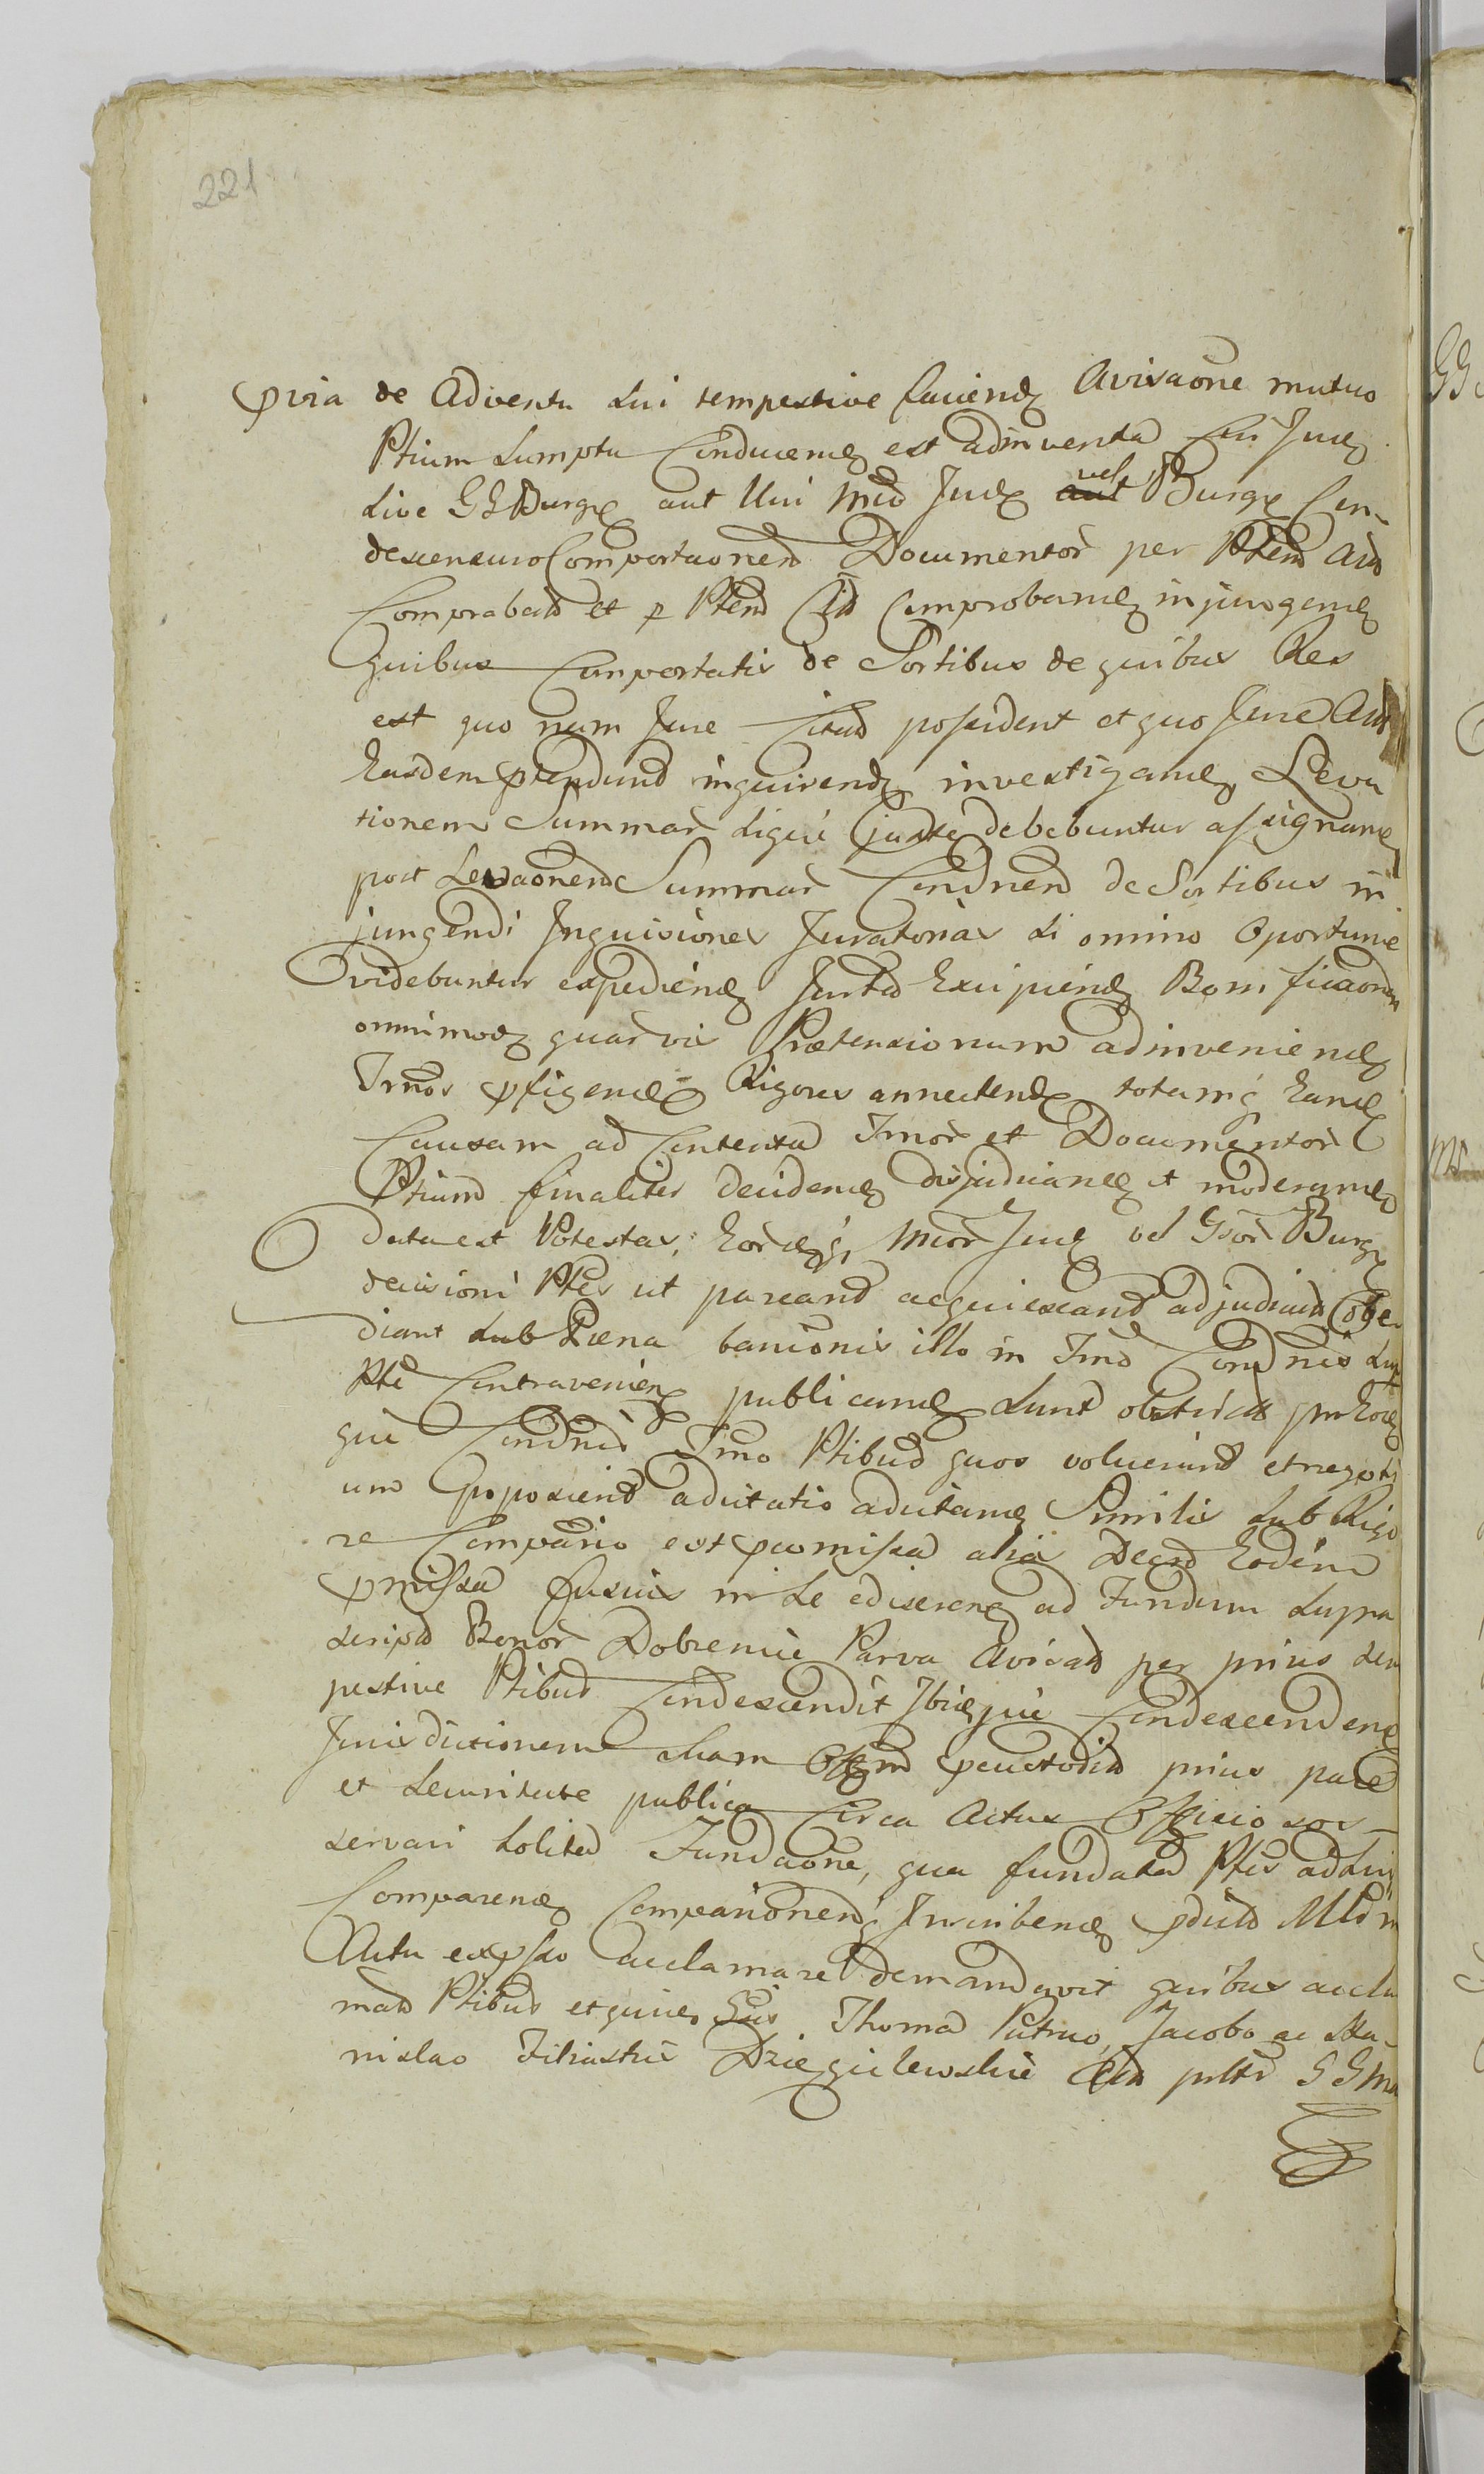 221
pvia de Adventu sui tempestive faciend Avisaone mutuo
Ptium sumptu Conducend est adinventa Cui Jud
sive GG Burg aut Uni Mco Jud vel Burg Con-
descensuro Comportaonem Documentor per Ptem
Comproband et p Ptem Cit Comproband injungend
quibus Comportatis de Sortibus de quibus Res
est quo nam Jure Citati possident et quo Jure
Easdem ptendunt inquirend investigand, Leva
tionem Summar siqui juste debebuntur assignand
post Levaonem Summar Condnem de Sortibus in
jungendi Inquisiones Juratorias si omnino Oportune
videbuntur expediend Juxta Excipiend Bonificaonem
omnimod quarvis Prætensionum adinveniend
Trnos pfigend Rigores annectend totamq Eand
Causam ad Contenta Jnor et Documentor
Ptium finaliter decidend disjudicand et moderand
data est Potestas, Eordq Mcor Jud vel Gsor Burg
decisioni Ptes ut pareant acquiescant adjudicat Obe-
diant sub Pæna banionis illo in Tmo Condnis sup
Pte Contravenien publicand sunt obstrict pro Eod
qui Condnis Tmo Ptibus quos voluerint et negoti
um poposcerit adcitatio adcitand Similis sub Rigo
re Compario est pcomissa alia Decr Eodem
pmissa fusius in se edisseren ad Fundum supra
script Bonor Dobrenice Parva Avisat per prius tem
pestive Ptibus Condescendit Ibidque Condescenden
Jurisdictionem suam Offm pcustodita prius pace
et securitate publica Circa Actus Officiosos
servari solita Fundaone, qua fundata Ptes ad sui
Comparend Comparionemq Inscribend pdict Mldm
Actu expsso acclamare demandavit quibus accla
mat Ptibus et quidem Gsis Thoma Patruo, Jacobo ac Sta-
nislao Filiastris Dzięgielewskie Cit GG